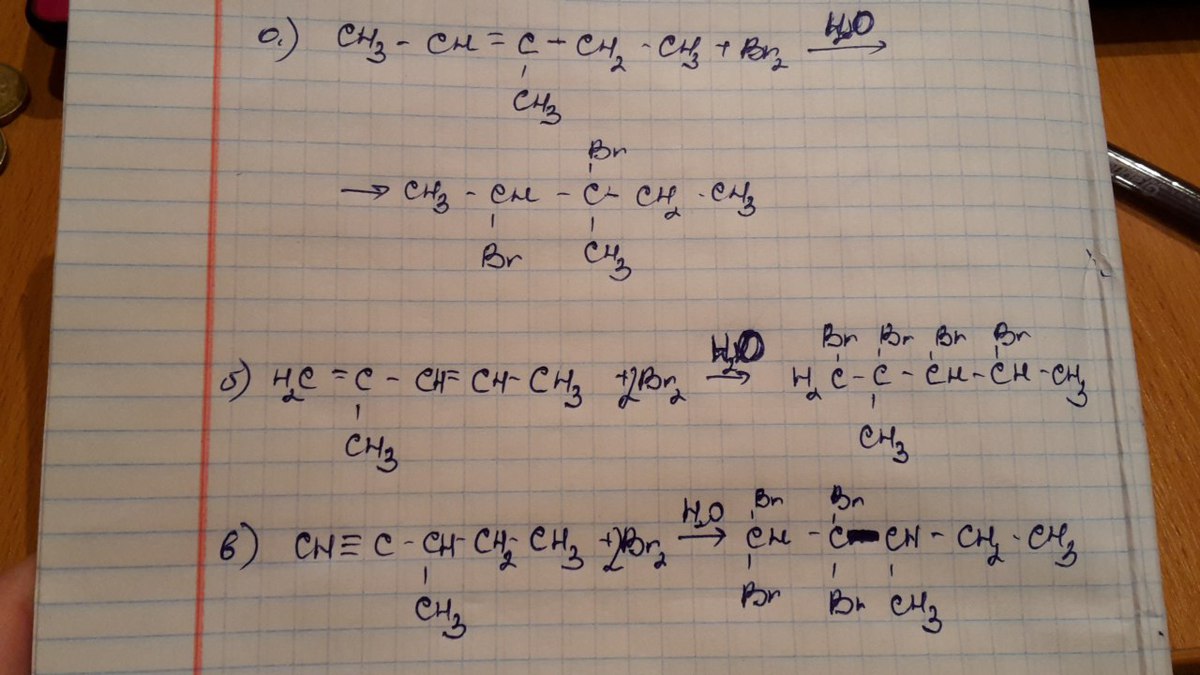 а.) CH3 - CH = C - CH2 - CH3 + Br2 H2O →
CH3
Br
→ CH3 - CH - C - CH2 - CH3
Br CH3
б) H2C = C - CH = CH - CH3 + 2Br2 H2O → Br Br Br Br
H2C - C - CH - CH - CH3
CH3 CH3
в) CH ≡ C - CH - CH2 - CH3 + 2Br2 H2O → Br Br
CH - C - CH - CH2 - CH3
CH3 Br Br CH3